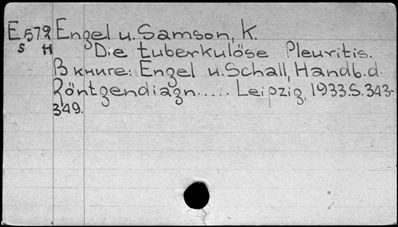 E 572 Engel u. Samson, K.
S H Die tuberkulöse Pleuritis.
В книге: Engel u. Schall, Handb. d.
Röntgendiagn..... Leipzig, 1933. S. 343-
349.